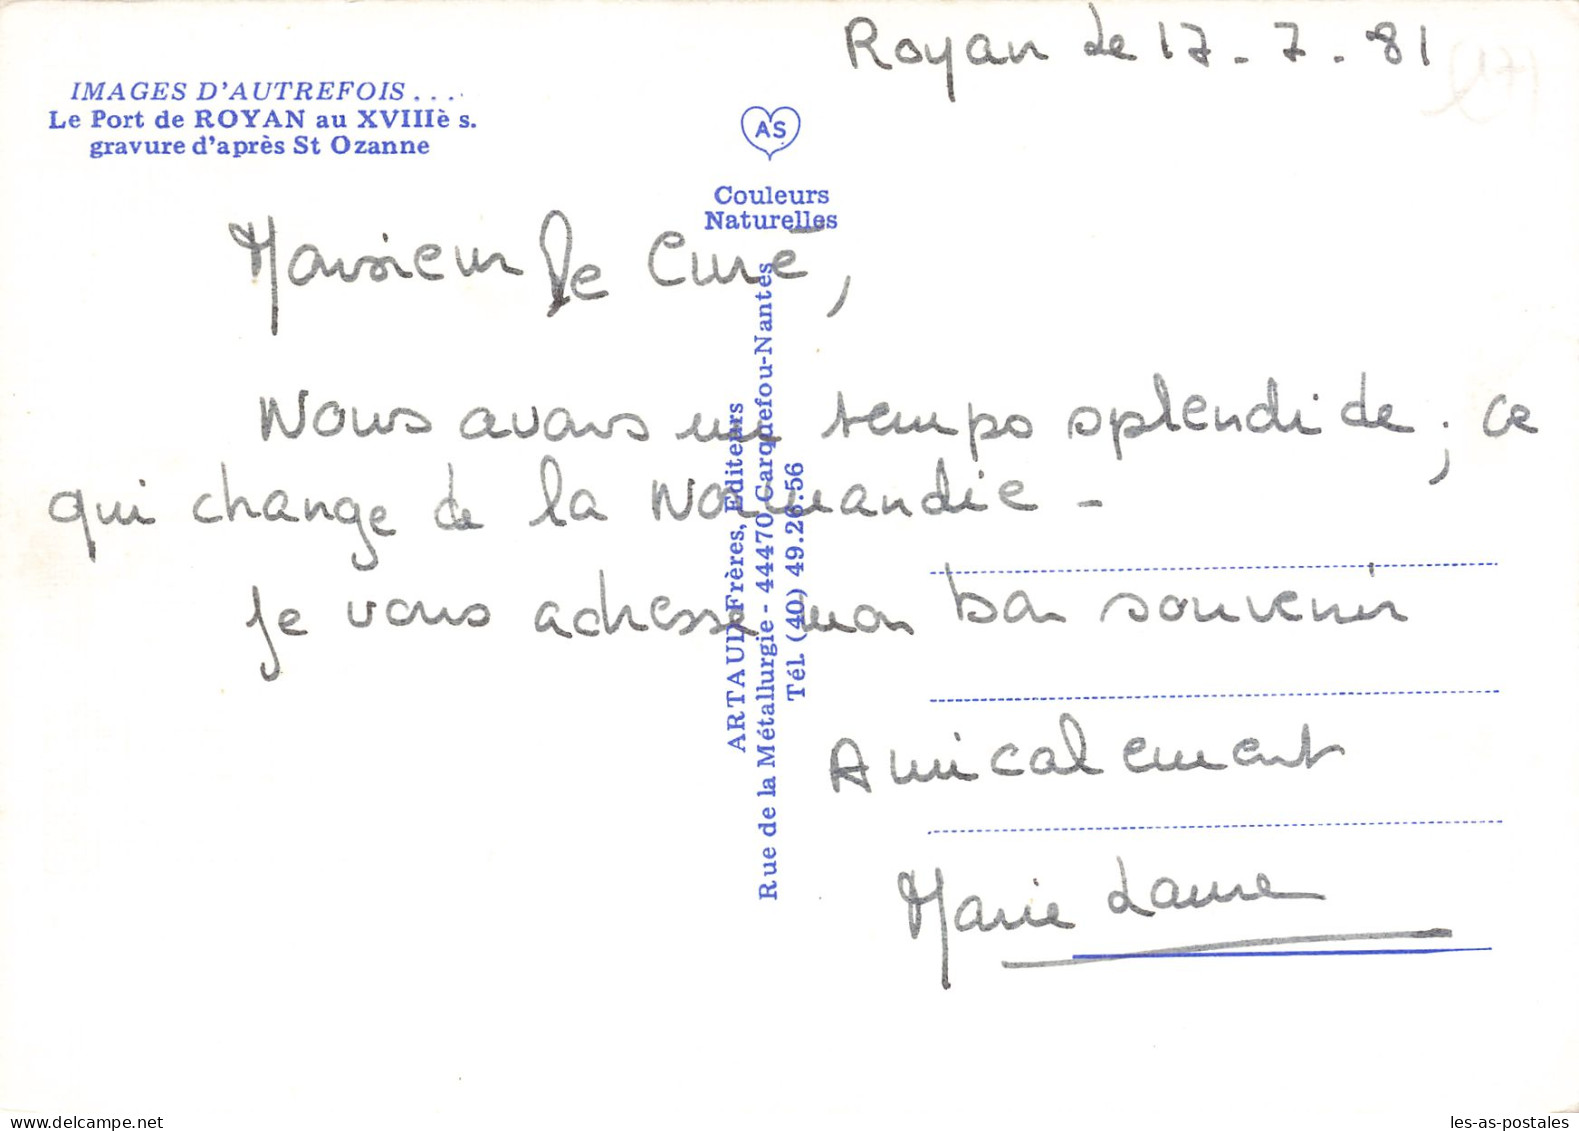 Royan le 17-7.81
IMAGES D'AUTREFOIS....
Le Port de ROYAN au XVIIIè s.
gravure d'après St Ozanne
AS
Couleurs
Naturelles
Monsieur le Curé,
Nous avons un temps splendide; ce
qui change de la Normandie -
Je vous adresse mon bon souvenir
Amicalement
Marie Laure
ARTAUD Frères, Editeurs
Rue de la Métallurgie - 44470 Carquefou-Nantes
Tél. (40) 49.26.56
les-as-postales